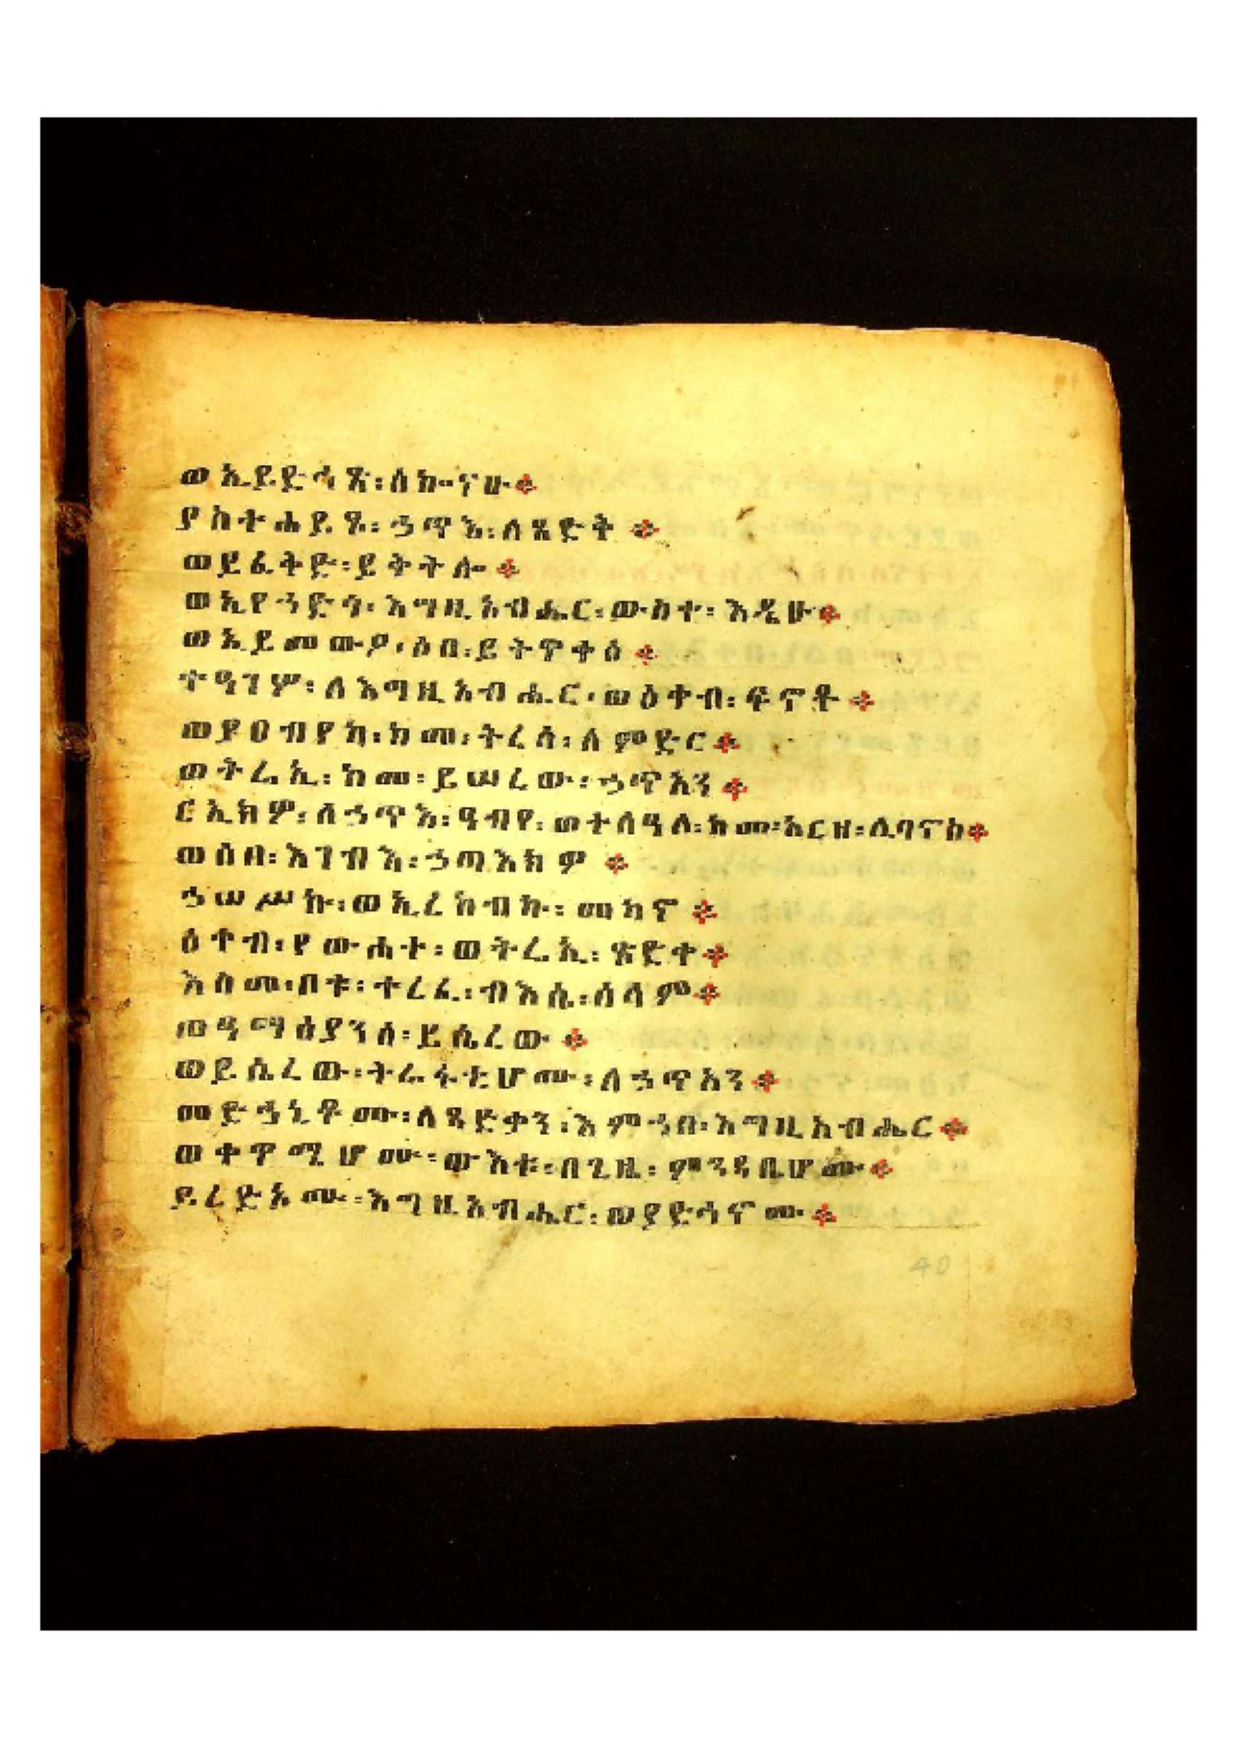 ወኢይድኅፅ፡ሰኰናሁ፨
ያስተሐይጾ፡ኃጥእ፡ለጻድቅ፨
ወይፈቅድ፡ይቅትሎ፨
ወኢየኀድጎ፡እግዚአብሔር፡ውስተ፡እዴሁ፨
ወኢይመውዖ፡ሶበ፡ይትዋቀሶ፨
ተዓገሦ፡ለእግዚአብሔር፡ወዕቀብ፡ፍኖቶ፨
ወያዐብየካ፡ከመ፡ትረሳ፡ለምድር፨
ወትሬኢ፡ከመ፡ይሠረው፡ኃጥአን፨
ርኢክዎ፡ለኃጥእ፡ዓብየ፡ወተለዓለ፡ከመ፡አርዘ፡ሊባኖስ፨
ወሶበ፡እገብእ፡ኃጣእክዎ፨
ኃሠሥኩ፡ወኢረከብኩ፡መካኖ፨
ዕቀብ፡የውሐተ፡ወትሬኢ፡ጽድቀ፨
እስመ፡በቱ፡ተረፈ፡ብእሲ፡ሰላም፨
ወዓማፅያንሰ፡ይሴረው፨
ወይሴረው፡ትራፋቲሆሙ፡ለኃጥአን፨
መድኃኒቶሙ፡ለጻድቃን፡እምኀበ፡እግዚአብሔር፨
ወቀዋሚሆሙ፡ውእቱ፡በጊዜ፡ምንዳቤሆሙ፨
ይረድአሙ፡እግዚአብሔር፡ወያድኅኖሙ፨
40